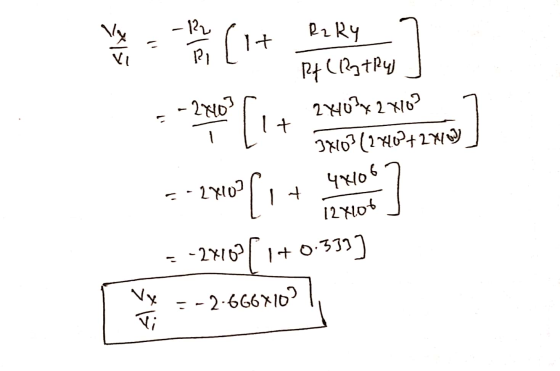 Vx/Vi = -R2/R1 [1 + R2R4/Rf(R3+R4)]
= -2×10³/1 [1 + 2×10³×2×10³/3×10³(2×10³+2×10³)]
= -2×10³ [1 + 4×10⁶/12×10⁶]
= -2×10³ [1+0.333]
Vx/Vi = -2.666×10³